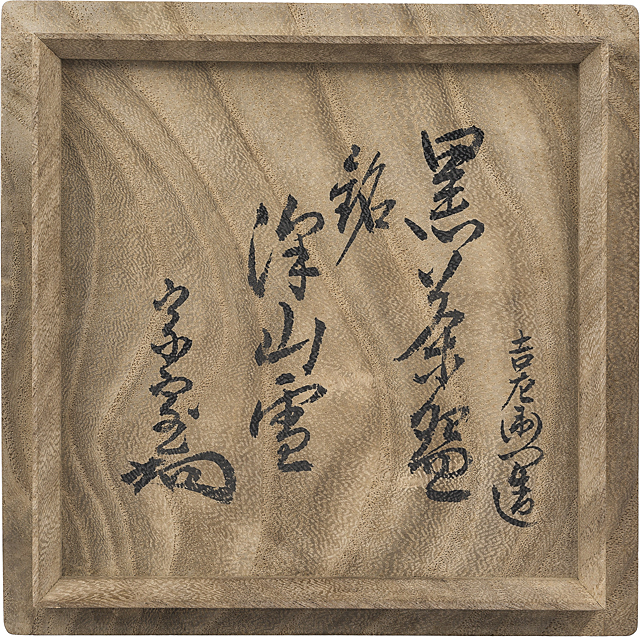 吉左衛門造
黒茶盌
銘
深山雪
宗室